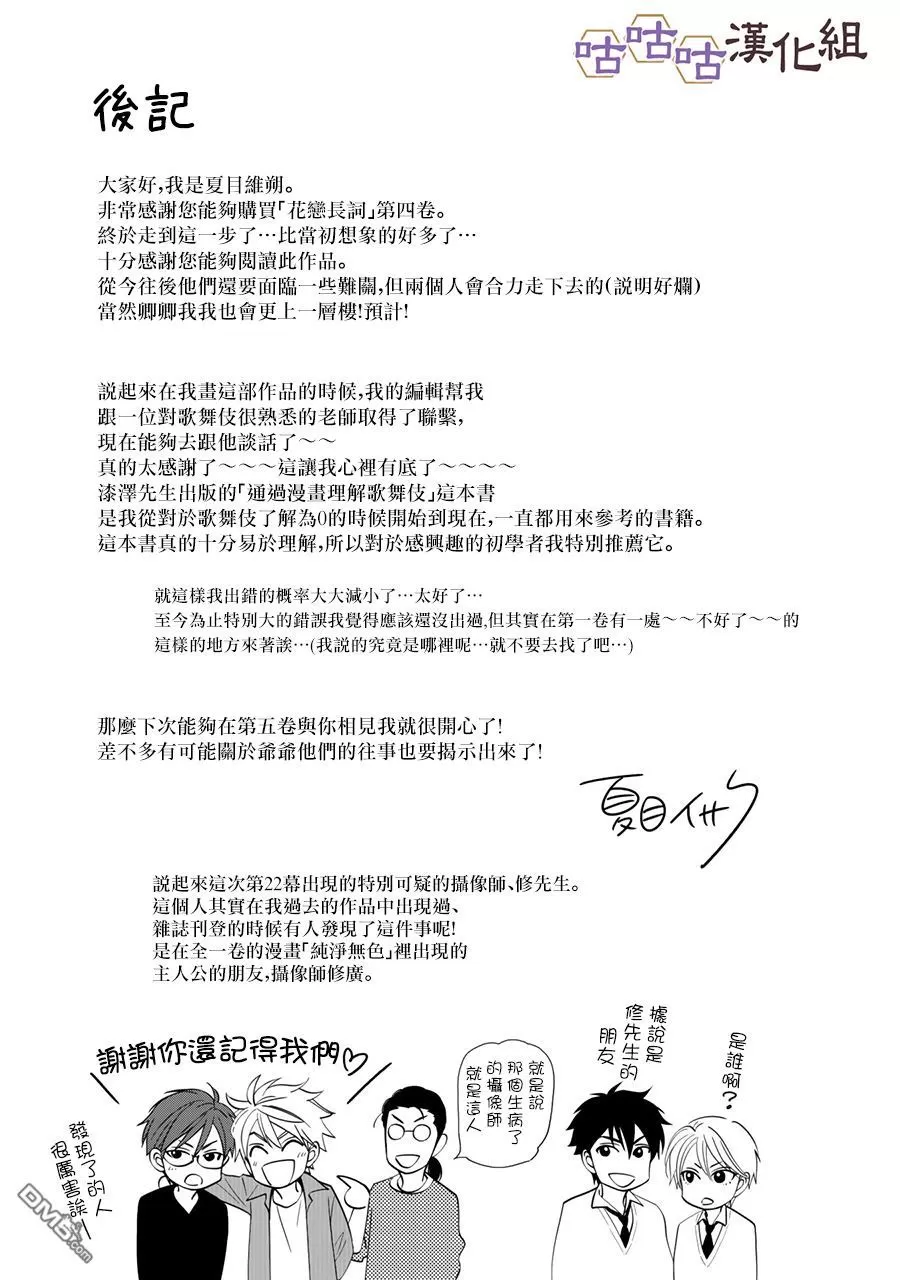 咕咕咕漢化組
後記
大家好,我是夏目維朔。
非常感謝您能夠購買「花戀長詞」第四卷。
終於走到這一步了…比當初想象的好多了…
十分感謝您能夠閱讀此作品。
從今往後他們還要面臨一些難關,但兩個人會合力走下去的(説明好爛)
當然卿卿我我也會更上一層樓!預計!
説起來在我畫這部作品的時候,我的編輯幫我
跟一位對歌舞伎很熟悉的老師取得了聯繫,
現在能夠去跟他談話了～～
真的太感謝了～～～這讓我心裡有底了～～～～
漆澤先生出版的「通過漫畫理解歌舞伎」這本書
是我從對於歌舞伎了解為0的時候開始到現在,一直都用來參考的書籍。
這本書真的十分易於理解,所以對於感興趣的初學者我特別推薦它。
就這樣我出錯的概率大大減小了…太好了…
至今為止特別大的錯誤我覺得應該還沒出過,但其實在第一卷有一處～～不好了～～的
這樣的地方來著誒…(我説的究竟是哪裡呢…就不要去找了吧…)
那麼下次能夠在第五卷與你相見我就很開心了!
差不多有可能關於爺爺他們的往事也要揭示出來了!
夏目イサク
説起來這次第22幕出現的特別可疑的攝像師、修先生。
這個人其實在我過去的作品中出現過、
雜誌刊登的時候有人發現了這件事呢!
是在全一卷的漫畫「純淨無色」裡出現的
主人公的朋友,攝像師修廣。
謝謝你還記得我們♡
發現了的人
很厲害誒—
就是說
那個生病了
的攝像師
就是這人
據說是
修先生的
朋友
是誰啊?
DM5.com